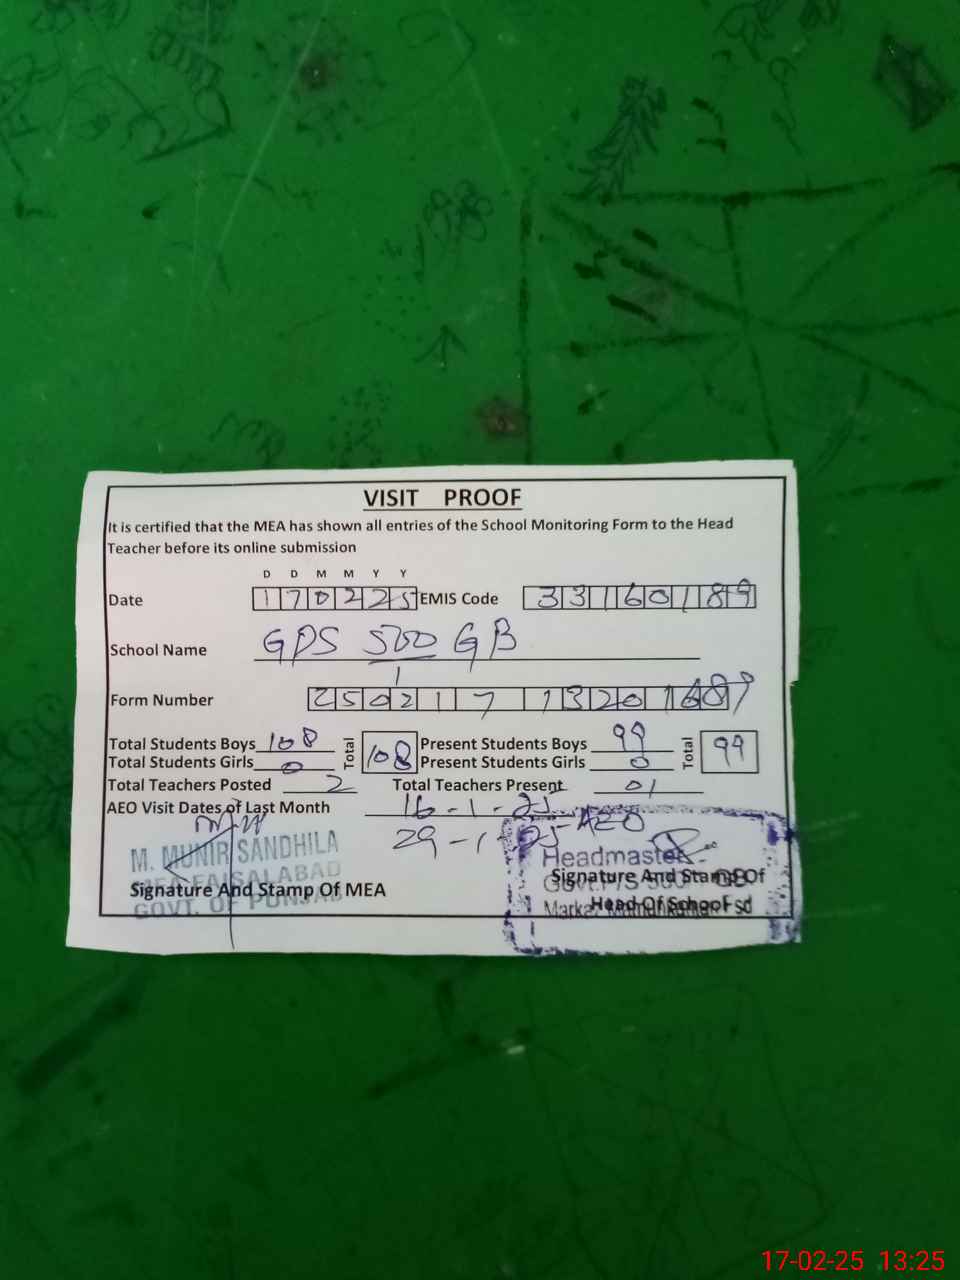 VISIT PROOF
It is certified that the MEA has shown all entries of the School Monitoring Form to the Head
Teacher before its online submission
D D M M Y Y
Date 170225 EMIS Code 33160189
School Name GPS 500 GB
Form Number
Total Students Boys 108 Total 108 Present Students Boys 99 Total 99
Total Students Girls 0 Present Students Girls 0
Total Teachers Posted 2 Total Teachers Present 01
AEO Visit Dates of Last Month 16-1-25
29-1-25 AEO
M. MUNIR SANDHILA
MEA FAISALABAD
GOVT. OF PUNJAB
Signature And Stamp Of MEA
Headmaster
Govt. P/S 500 GB
Signature And Stamp Of
Head Of School
17-02-25 13:25